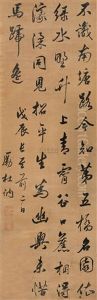 不識南塘路今知第五橋名園依
綠水野竹上青霄谷口舊相得
濠梁同見招平生為幽興未惜
馬蹄遙
戊辰長至前二日
厲杜訥